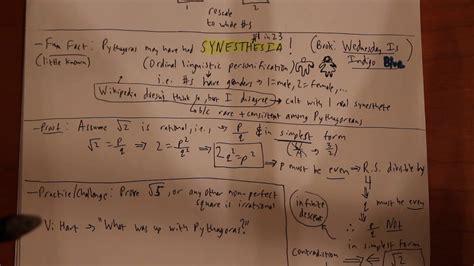 rescale
to whole #s
- Fun Fact: Pythagoras may have had SYNESTHESIA!
#1 in 23
(little known)
(Book: Wednesday Is
Indigo Blue)
(Ordinal linguistic personification)
i.e. #s have genders → 1=male, 2=female, ...
Wikipedia doesn't think so, but I disagree → cult with 1 real synesthete
rare + consistent among Pythagoreans
- Proof: Assume √2 is rational, i.e., → p/q & in simplest form
√2 = p/q ⇒ 2 = p²/q² ⇒ 2q² = p²
→ p must be even → R.S. divisible by
4
q must be even
p/q Not
in simplest form
√2
Infinite
descent
Contradiction
- Practice/Challenge: Prove √5, or any other non-perfect
square is irrational
Vi Hart → "What was up with Pythagoras?"